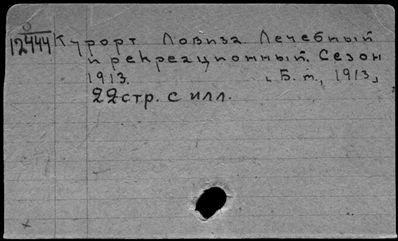 0
12444 Курорт Ловиза Лечебный
и рекреационный. Сезон
1913. Б. т., 1913,
22 стр. с илл.